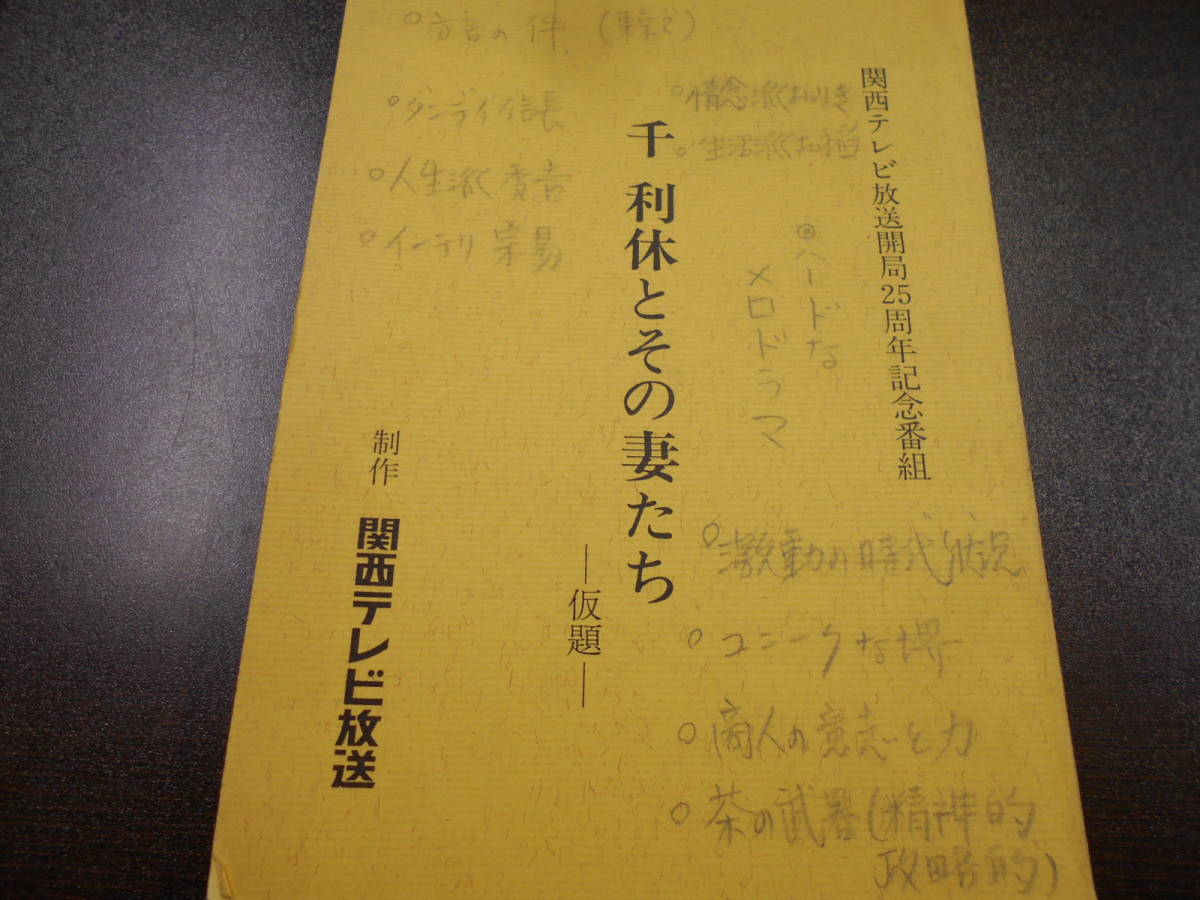 関西テレビ放送開局25周年記念番組
千利休とその妻たち
―仮題―
制作 関西テレビ放送
○方言の件
○ダンディ信長
○人生派秀吉
○インテリ宗易
○情念派おりき
○生活派お稲
◎ハードな
メロドラマ
○激動の時代状況
○ユニークな堺
○商人の意志と力
○茶の武器(精神的
政略的)